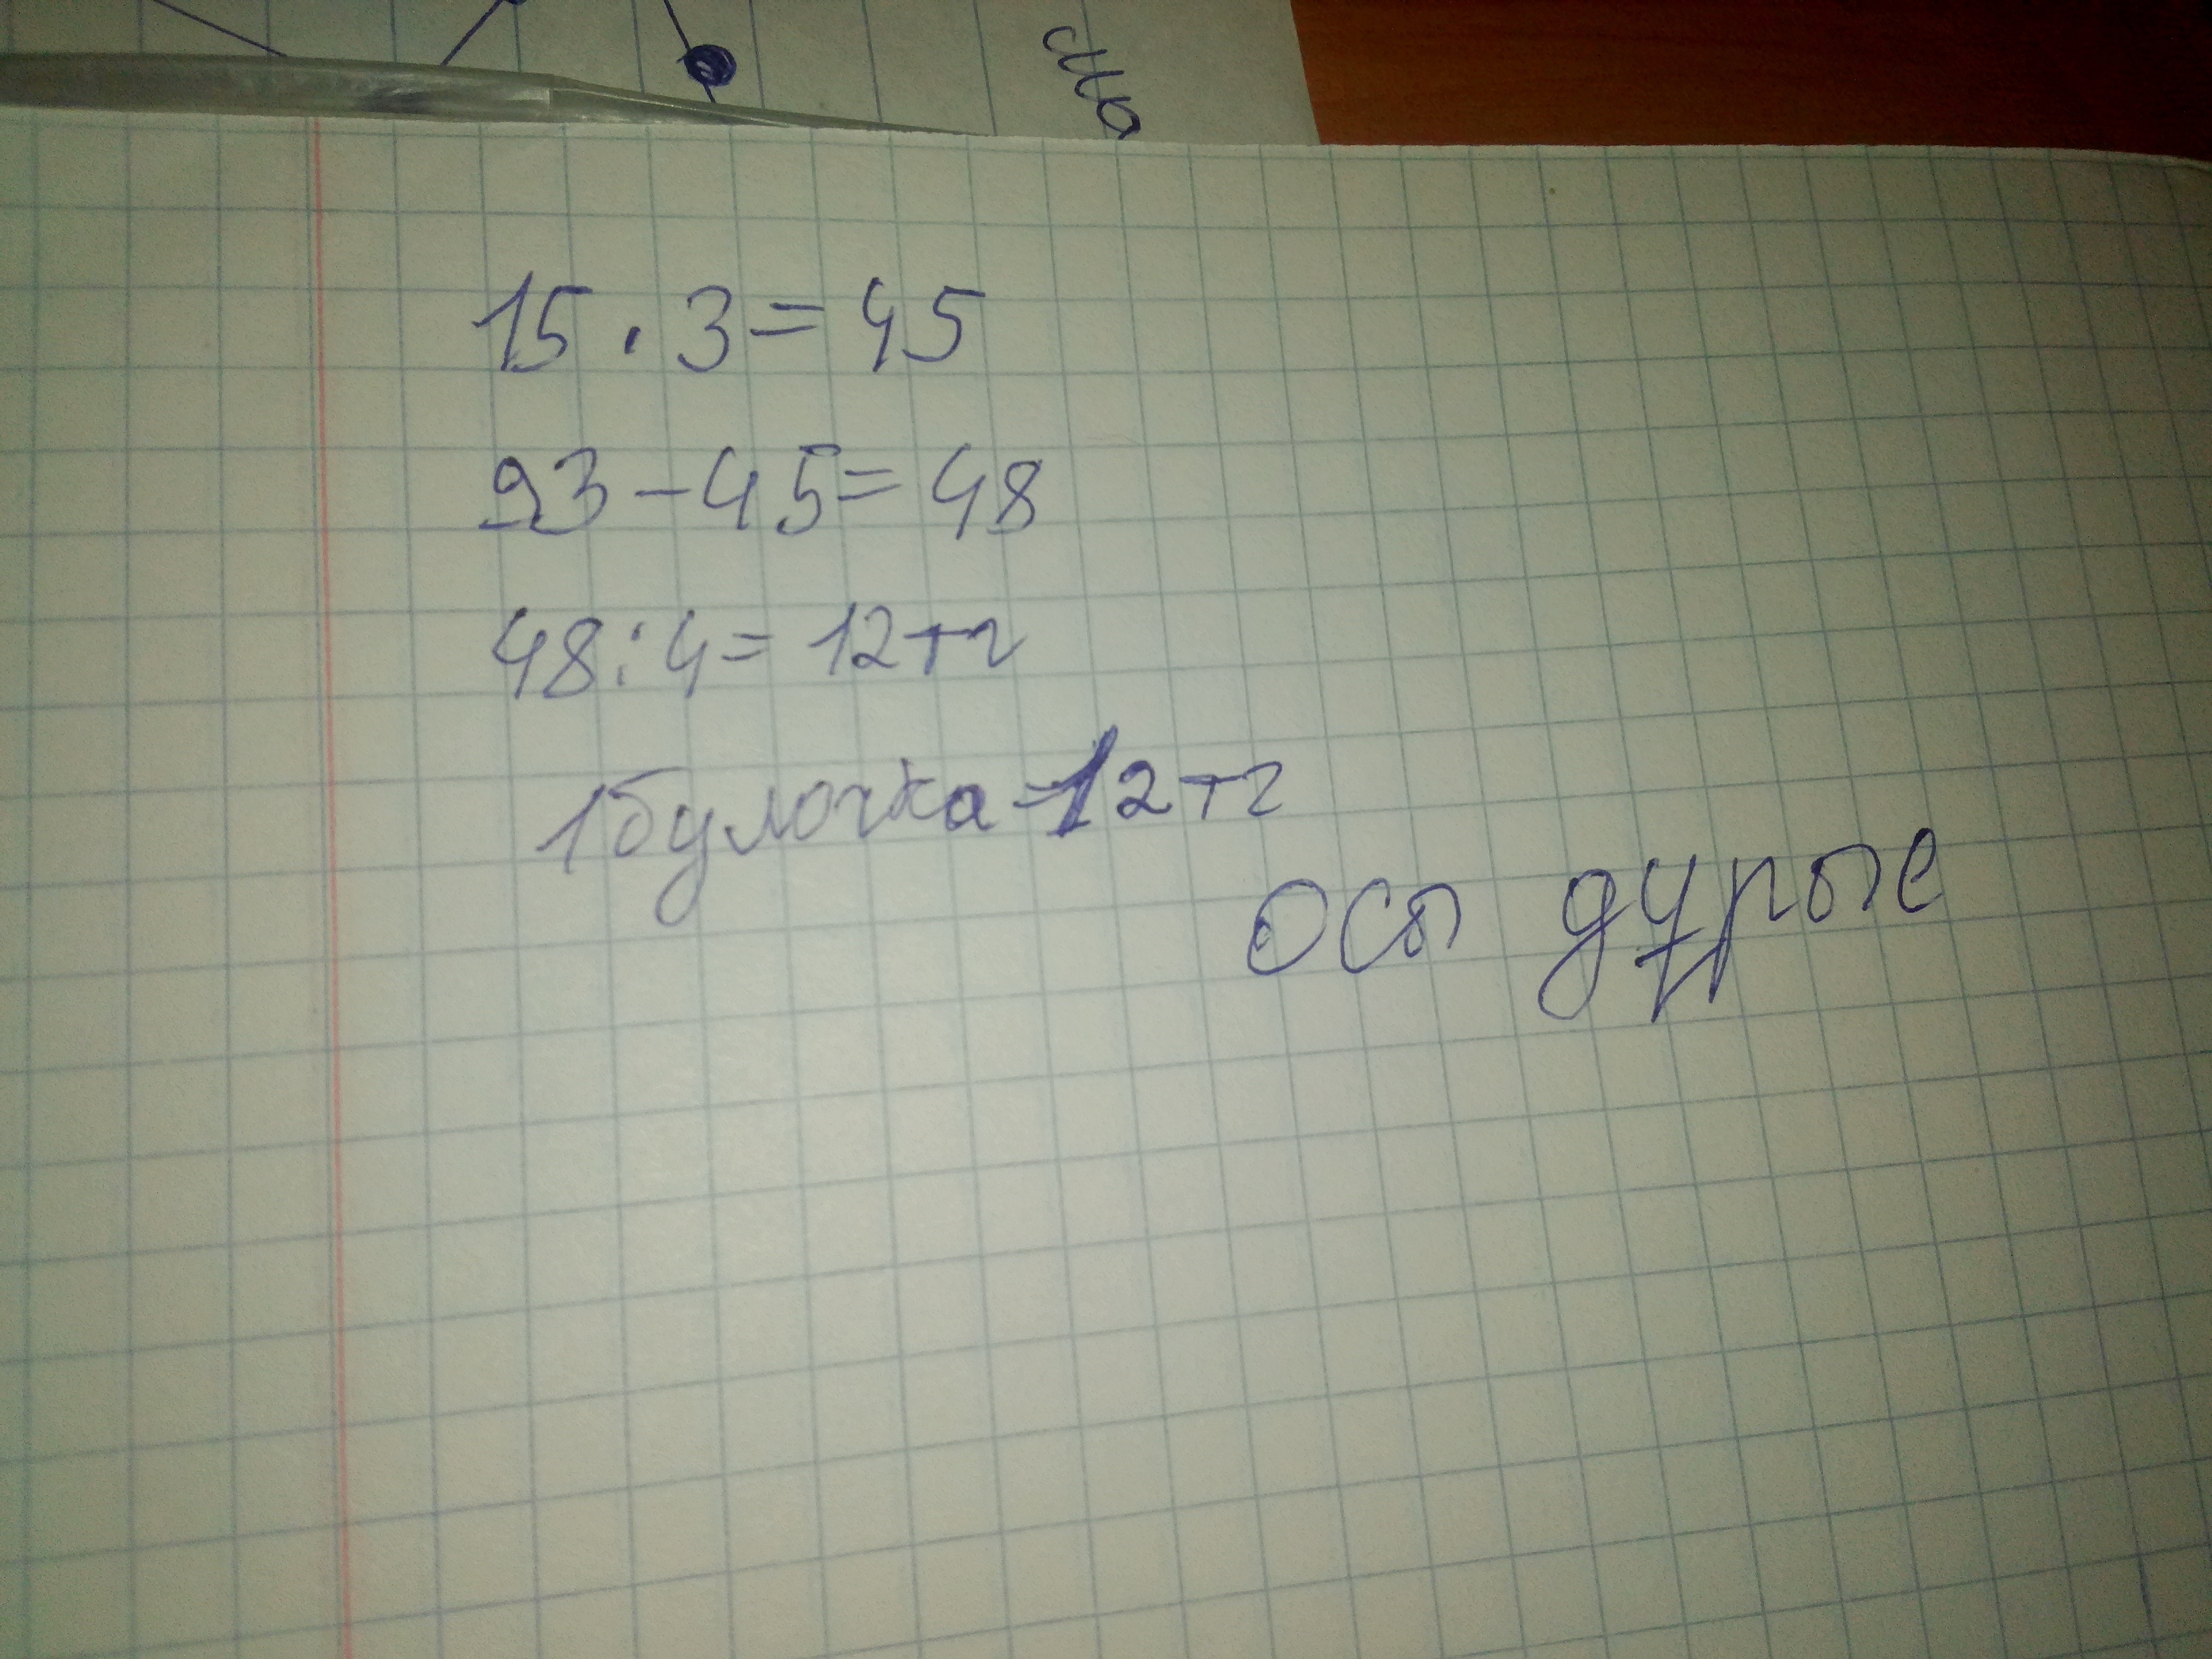 15 · 3 = 45
93 - 45 = 48
48 : 4 = 12 тг
1 булочка = 12 тг
осы дұрыс